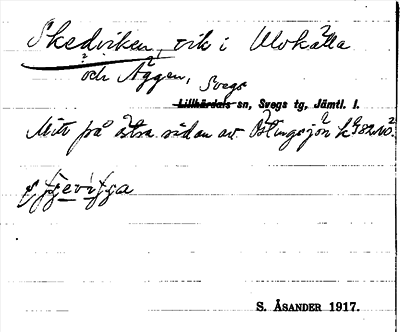 Skedviken, vik i Ulvkälla
och Äggen,
Svegs
Lillhärdals sn, Svegs tg, Jämtl. l.
Mitt på östra sidan av Östingsjön
S. ÅSANDER 1917.